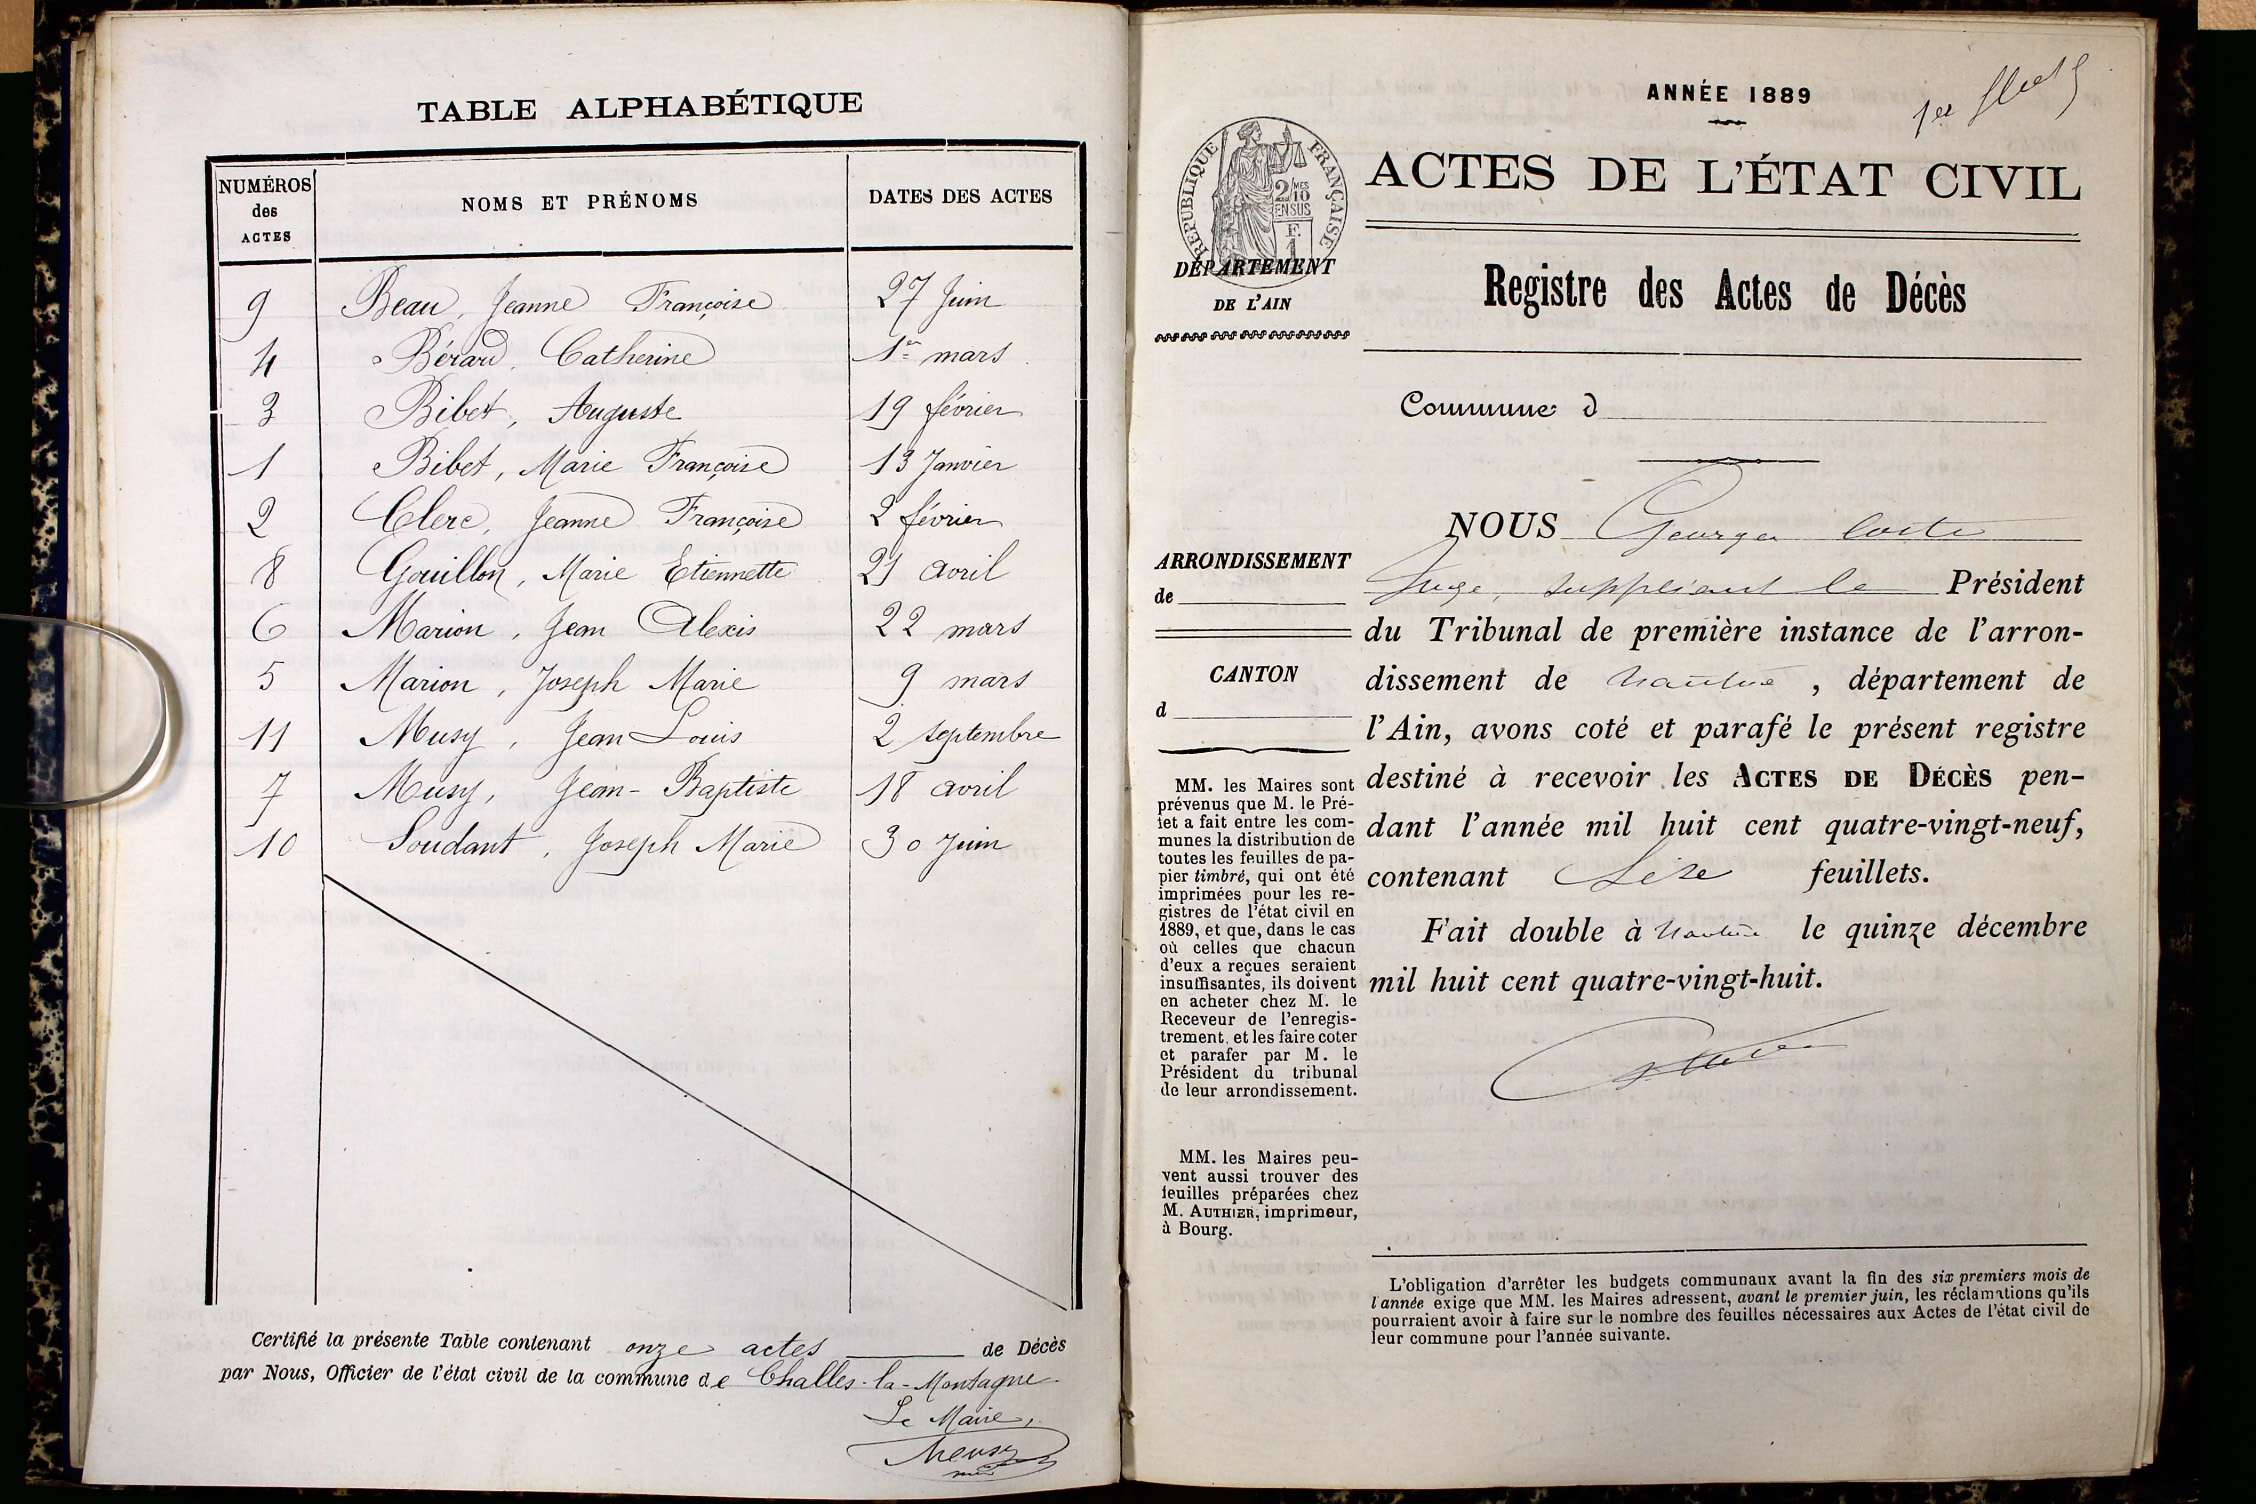 TABLE ALPHABÉTIQUE
NUMÉROS des ACTES NOMS ET PRÉNOMS DATES DES ACTES
9 Beau, Jeanne Françoise 27 Juin
4 Bérard, Catherine 1er mars
3 Bibet, Auguste 19 février
1 Bibet, Marie Françoise 13 Janvier
2 Clerc, Jeanne Françoise 2 février
8 Gouillon, Marie Etiennette 21 avril
6 Marion, Jean Alexis 22 mars
5 Marion, Joseph Marie 9 mars
11 Musy, Jean Louis 2 septembre
7 Musy, Jean-Baptiste 18 avril
10 Soudant, Joseph Marie 30 Juin
Certifié la présente Table contenant onze actes de Décès
par Nous, Officier de l'état civil de la commune de Challes-la-Montagne
Le Maire,
ANNÉE 1889
RÉPUBLIQUE FRANÇAISE
2/MES
10
EN SUS
F.
1
ACTES DE L'ÉTAT CIVIL
DÉPARTEMENT
DE L'AIN
Registre des Actes de Décès
Commune d
ARRONDISSEMENT
de
CANTON
d
MM. les Maires sont
prévenus que M. le Pré-
fet a fait entre les com-
munes la distribution de
toutes les feuilles de pa-
pier timbré, qui ont été
imprimées pour les re-
gistres de l'état civil en
1889, et que, dans le cas
où celles que chacun
d'eux a reçues seraient
insuffisantes, ils doivent
en acheter chez M. le
Receveur de l'enregis-
trement, et les faire coter
et parafer par M. le
Président du tribunal
de leur arrondissement.
MM. les Maires peu-
vent aussi trouver des
feuilles préparées chez
M. AUTHIER, imprimeur,
à Bourg.
NOUS Georges Coste
Juge, suppléant le Président
du Tribunal de première instance de l'arron-
dissement de Nantua, département de
l'Ain, avons coté et parafé le présent registre
destiné à recevoir les ACTES DE DÉCÈS pen-
dant l'année mil huit cent quatre-vingt-neuf,
contenant feuillets.
Fait double à Nantua le quinze décembre
mil huit cent quatre-vingt-huit.
L'obligation d'arrêter les budgets communaux avant la fin des six premiers mois de
l'année exige que MM. les Maires adressent, avant le premier juin, les réclamations qu'ils
pourraient avoir à faire sur le nombre des feuilles nécessaires aux Actes de l'état civil de
leur commune pour l'année suivante.